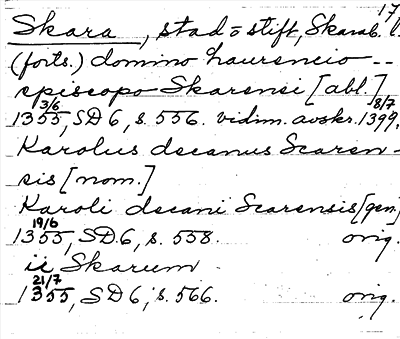 17
Skara, stad o stift, Skarab. l.
(forts.) domino haurencio --
episcopo Skarensi [abl.]
3/6 8/7
1355, SD 6, s. 556. vidim. avskr. 1399.
Karolus decanus Scaren-
sis [nom.]
Karoli decani Scarensis [gen.]
19/6
1355, SD 6, s. 558. orig.
ii Skarum
21/7
1355, SD 6, s. 566. orig.